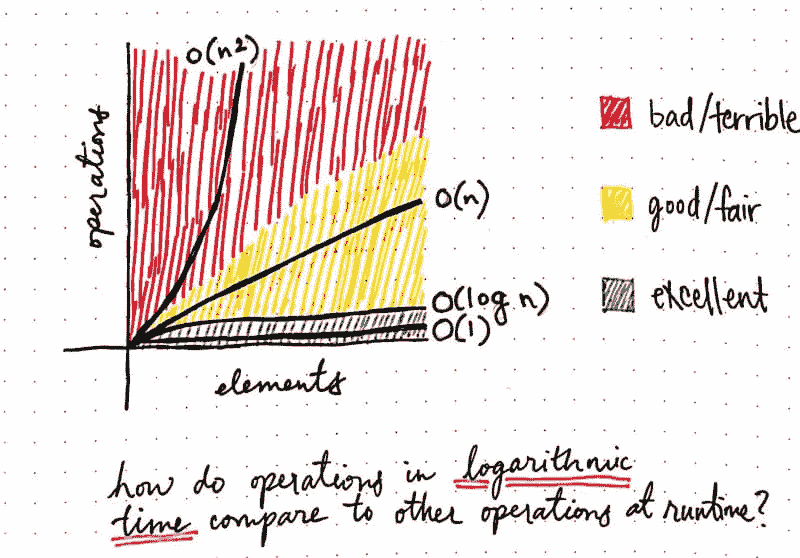 O(n2)
operations
O(n)
O(log n)
O(1)
elements
bad/terrible
good/fair
excellent
how do operations in logarithmic
time compare to other operations at runtime?